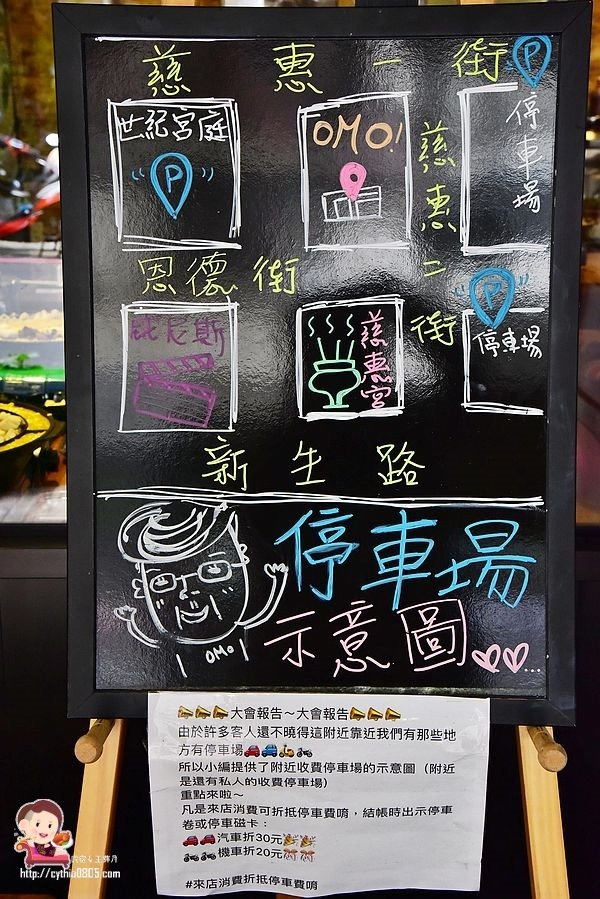 慈惠一街
P
世紀宮庭
P
OMO!
慈惠二街
停車場
恩德街
P
停車場
威尼斯
慈惠宮
新生路
OMO!
停車場
示意圖
...
大會報告～大會報告
由於許多客人還不曉得這附近靠近我們有那些地
方有停車場
所以小編提供了附近收費停車場的示意圖（附近
是還有私人的收費停車場）
重點來啦～
凡是來店消費可折抵停車費唷，結帳時出示停車
卷或停車磁卡：
汽車折30元
機車折20元
#來店消費折抵停車費唷
http://cythia0805.com